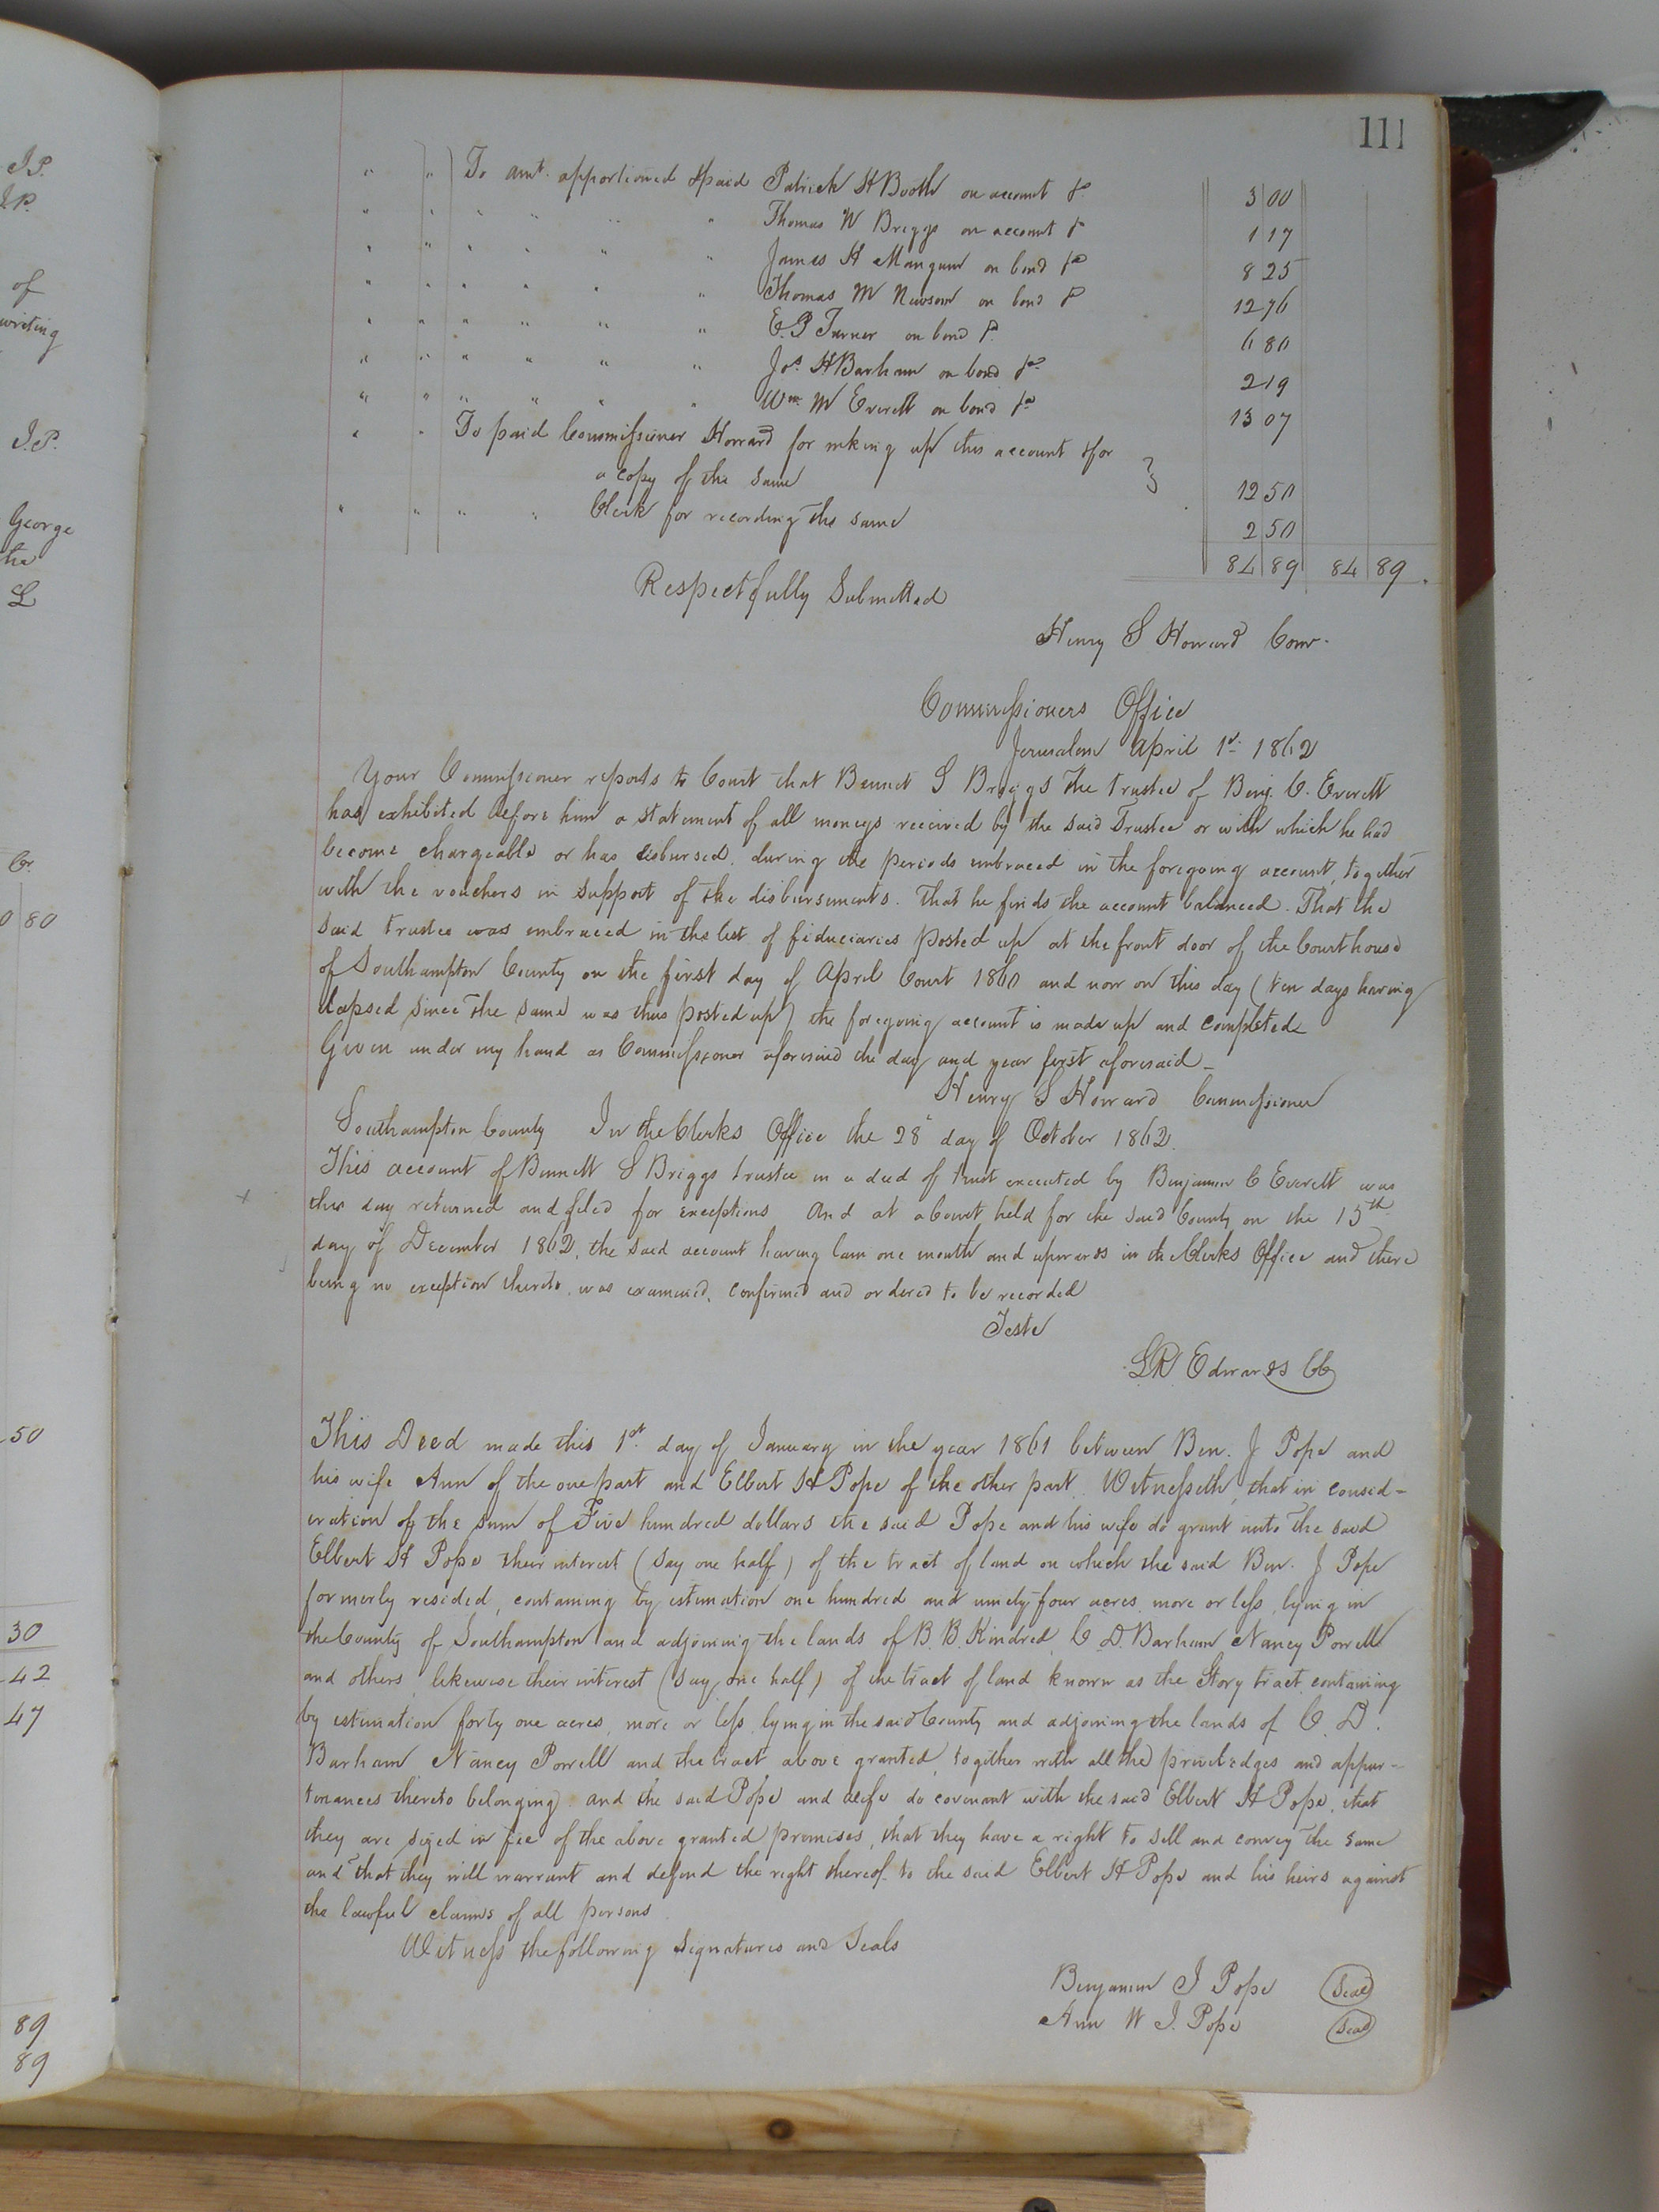 111
" " To amt. apportioned & paid Patrick H Booth on account pr 3 00
" " " " " " Thomas W Briggs on account pr 1 17
" " " " " " James H Mangum on bond pr 8 25
" " " " " " Thomas W Newsom on bond pr 12 76
" " " " " " E. P Turner on bond pr 6 80
" " " " " " Jos. H Barham on bond pr 2 19
" " " " " " Wm. W Everett on bond pr 13 07
" " To paid Commissioner Howard for mking up this account & for
a copy of the same 12 50
" " " " Clerk for recording the same 2 50
84 89 84 89
Respectfully Submitted
Henry S Howard Comr.
Commissioners Office
Jerusalem April 1st. 1862
Your Commissioner reports to Court that Bennet S Briggs the trustee of Benj. C. Everett
has exhibited before him a statement of all moneys received by the said Trustee or with which he had
become chargeable or has disbursed, during the periods embraced in the foregoing account, together
with the vouchers in support of the disbursements. That he finds the account balanced. That the
said trustee was embraced in the list of fiduciaries posted up at the front door of the Courthouse
of Southampton County on the first day of April Court 1860 and now on this day (ten days having
elapsed since the same was thus posted up) the foregoing account is made up and completed
Given under my hand as Commissioner aforesaid the day and year first aforesaid_
Henry S Howard Commissioner
Southampton County In the Clerks Office the 28" day of October 1862.
This account of Bennett S Briggs trustee in a deed of trust executed by Benjamin C Everett was
this day returned and filed for exceptions And at a Court held for the said County on the 15th
day of December 1862, the said account having lain one month and upwards in the Clerks Office and there
being no exception thereto, was examined, confirmed and ordered to be recorded
Teste
LR Edwards CC
This Deed made this 1st. day of January in the year 1861 between Ben. J Pope and
his wife Ann of the one part and Elbert H Pope of the other part. Witnesseth, that in consid-
eration of the sum of Five hundred dollars the said Pope and his wife do grant unto the said
Elbert H Pope their interest (say one half) of the tract of land on which the said Ben. J Pope
formerly resided, containing by estimation one hundred and ninety-four acres more or less, lying in
the County of Southampton and adjoining the lands of B. B. Kindred, C. D. Barham, Nancy Powell
and others, likewise their interest (say one half) of the tract of land known as the Story tract, containing
by estimation forty one acres, more or less, lying in the said County and adjoining the lands of C. D.
Barham, Nancy Powell and the tract above granted, together with all the priviledges and appur-
tenances thereto belonging. and the said Pope and wife do covenant with the said Elbert H Pope, that
they are sized in fee of the above granted premises, that they have a right to sell and convey the same
and that they will warrant and defend the right thereof to the said Elbert H Pope and his heirs against
the lawful claims of all persons.
Witness the following signatures and Seals
Benjamin J Pope Seal
Ann W J. Pope Seal
J.P.
J.P.
of
writing
J.P.
George
the
L
Cr.
0 80
50
30
42
47
89
89